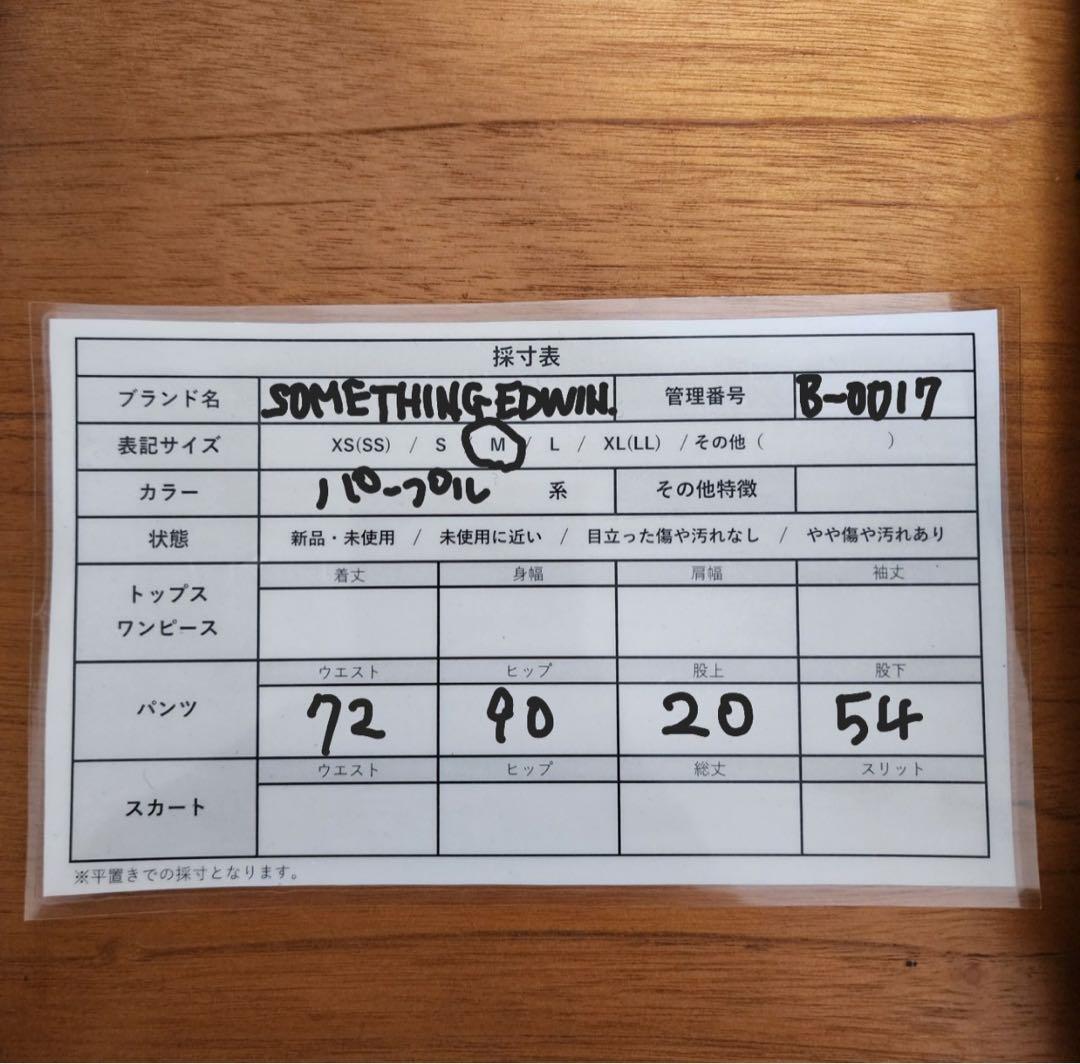 採寸表
ブランド名 SOMETHING EDWIN. 管理番号 B-0017
表記サイズ XS(SS) / S / M / L / XL(LL) / その他 ( )
カラー パープル 系 その他特徴
状態 新品・未使用 / 未使用に近い / 目立った傷や汚れなし / やや傷や汚れあり
着丈 身幅 肩幅 袖丈
トップス
ワンピース
ウエスト ヒップ 股上 股下
パンツ 72 90 20 54
ウエスト ヒップ 総丈 スリット
スカート
※平置きでの採寸となります。